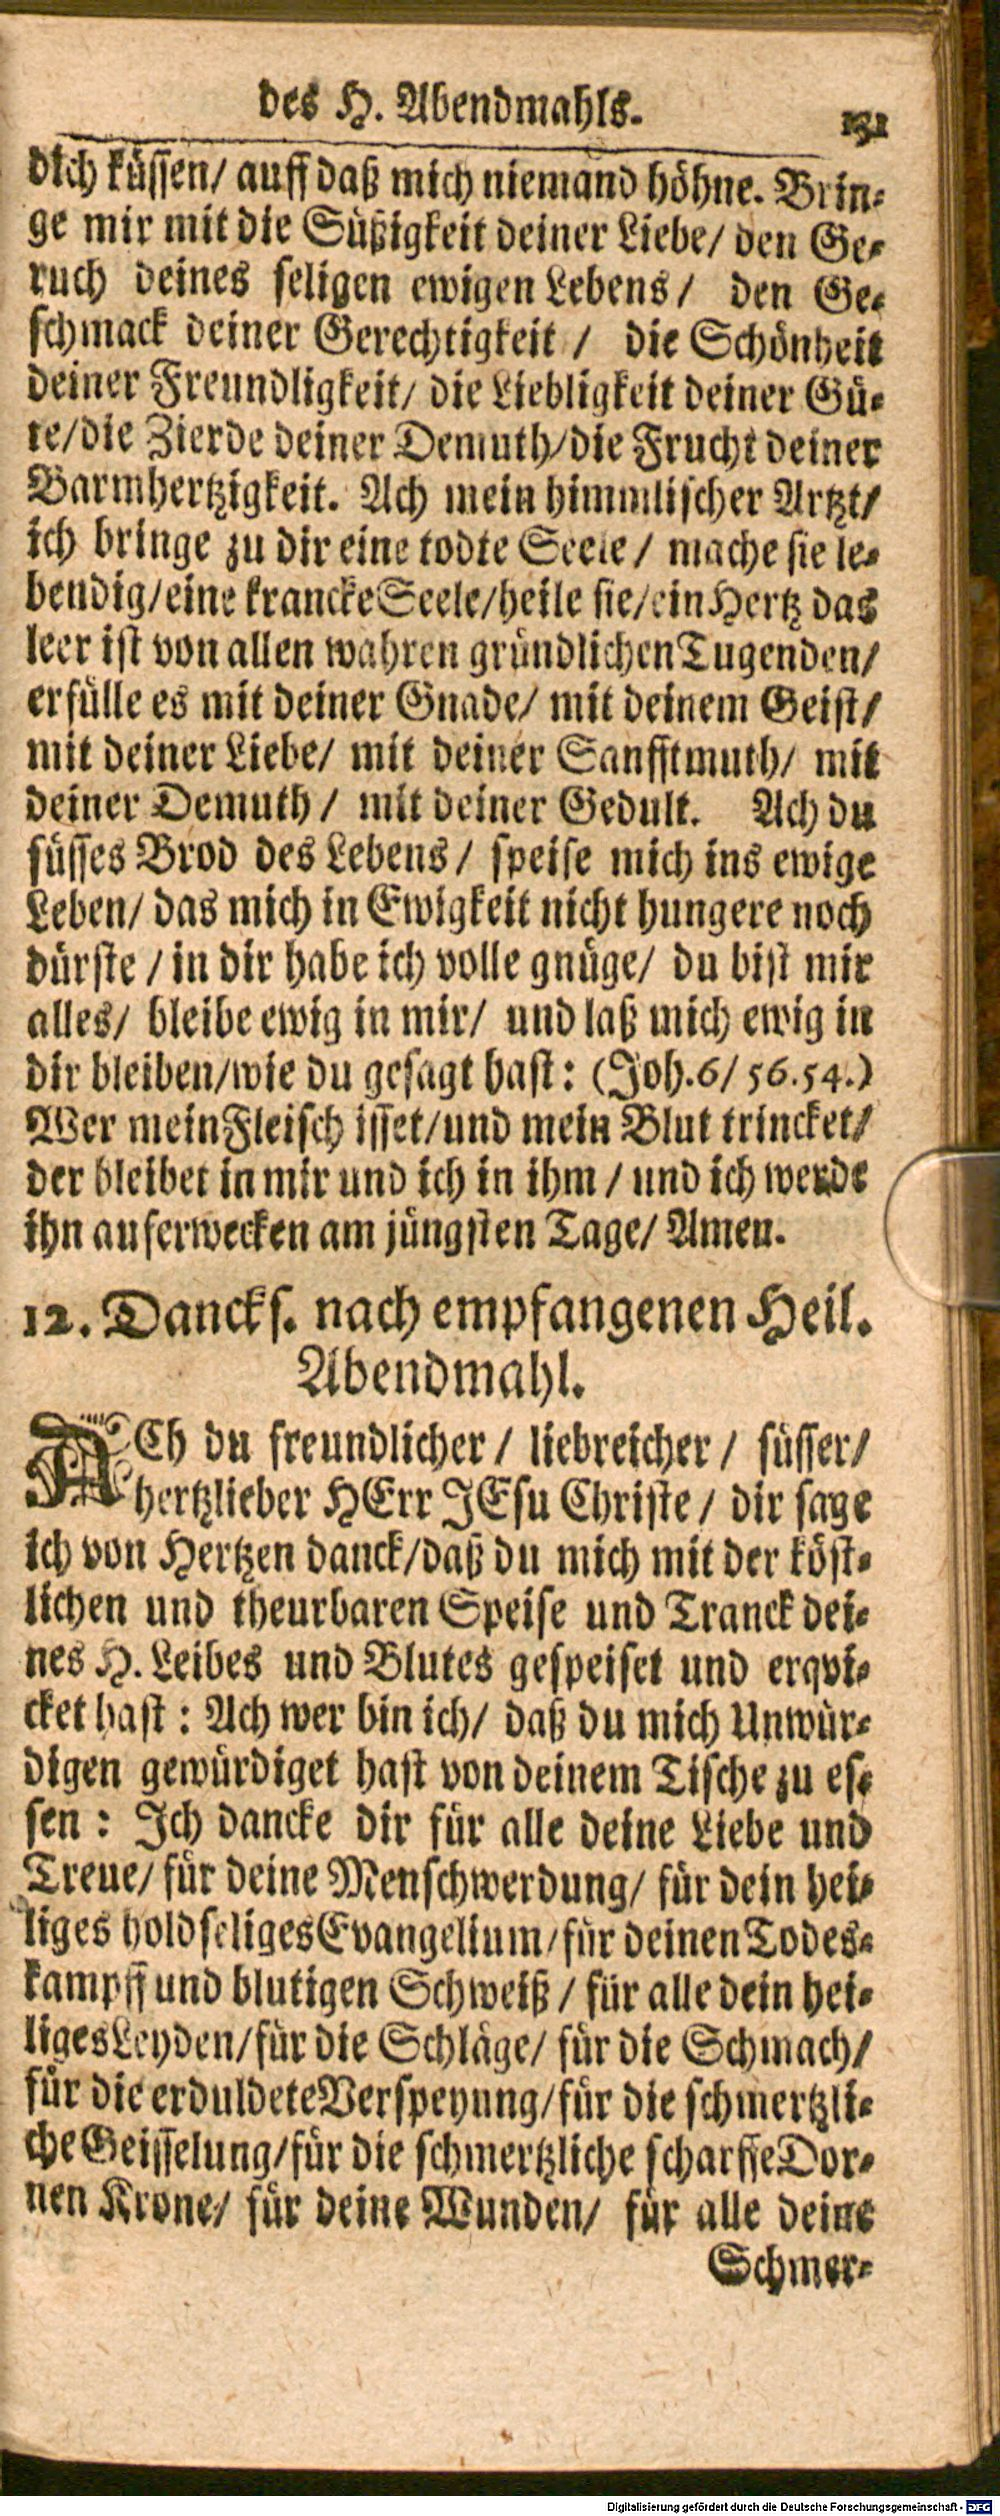 des H. Abendmahls. 131
dich küssen/ auff daß mich niemand höhne. Brin-
ge mir mit die Süßigkeit deiner Liebe/ den Ge-
ruch deines seligen ewigen Lebens/ den Ge-
schmack deiner Gerechtigkeit / die Schönheit
deiner Freundligkeit/ die Liebligkeit deiner Gü-
te/die Zierde deiner Demuth/die Frucht deiner
Barmhertzigkeit. Ach mein himmlischer Artzt/
ich bringe zu dir eine todte Seele / mache sie le-
bendig/eine krancke Seele/heile sie/ein Hertz das
leer ist von allen wahren gründlichen Tugenden/
erfülle es mit deiner Gnade/ mit deinem Geist/
mit deiner Liebe/ mit deiner Sanfftmuth/ mit
deiner Demuth / mit deiner Gedult. Ach du
süsses Brod des Lebens / speise mich ins ewige
Leben/ das mich in Ewigkeit nicht hungere noch
dürste / in dir habe ich volle gnüge/ du bist mir
alles/ bleibe ewig in mir/ und laß mich ewig in
dir bleiben/wie du gesagt hast: (Joh.6/ 56.54.)
Wer mein Fleisch isset/und mein Blut trincket/
der bleibet in mir und ich in ihm / und ich werde
ihn auferwecken am jüngsten Tage/ Amen.
12. Dancks. nach empfangenen Heil.
Abendmahl.
ACh du freundlicher / liebreicher / süsser/
hertzlieber HErr JEsu Christe / dir sage
ich von Hertzen danck/daß du mich mit der köst-
lichen und theurbaren Speise und Tranck dei-
nes H. Leibes und Blutes gespeiset und erqvi-
cket hast : Ach wer bin ich/ daß du mich Unwür-
digen gewürdiget hast von deinem Tische zu es-
sen : Ich dancke dir für alle deine Liebe und
Treue/ für deine Menschwerdung/ für dein hei-
liges holdseliges Evangelium/für deinen Todes-
kampff und blutigen Schweiß / für alle dein hei-
liges Leyden/für die Schläge/ für die Schmach/
für die erduldete Verspeyung/für die schmertzli-
che Geisselung/für die schmertzliche scharffe Dor-
nen Krone/ für deine Wunden/ für alle deine
Schmer-
Digitalisierung gefördert durch die Deutsche Forschungsgemeinschaft - DFG